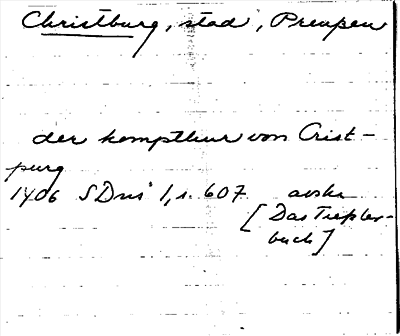 Christburg, stad, Preußen
der kompthur von Crist-
purg
1406 SDns 1, s. 607 avskr
[Das Treßler-
buch]